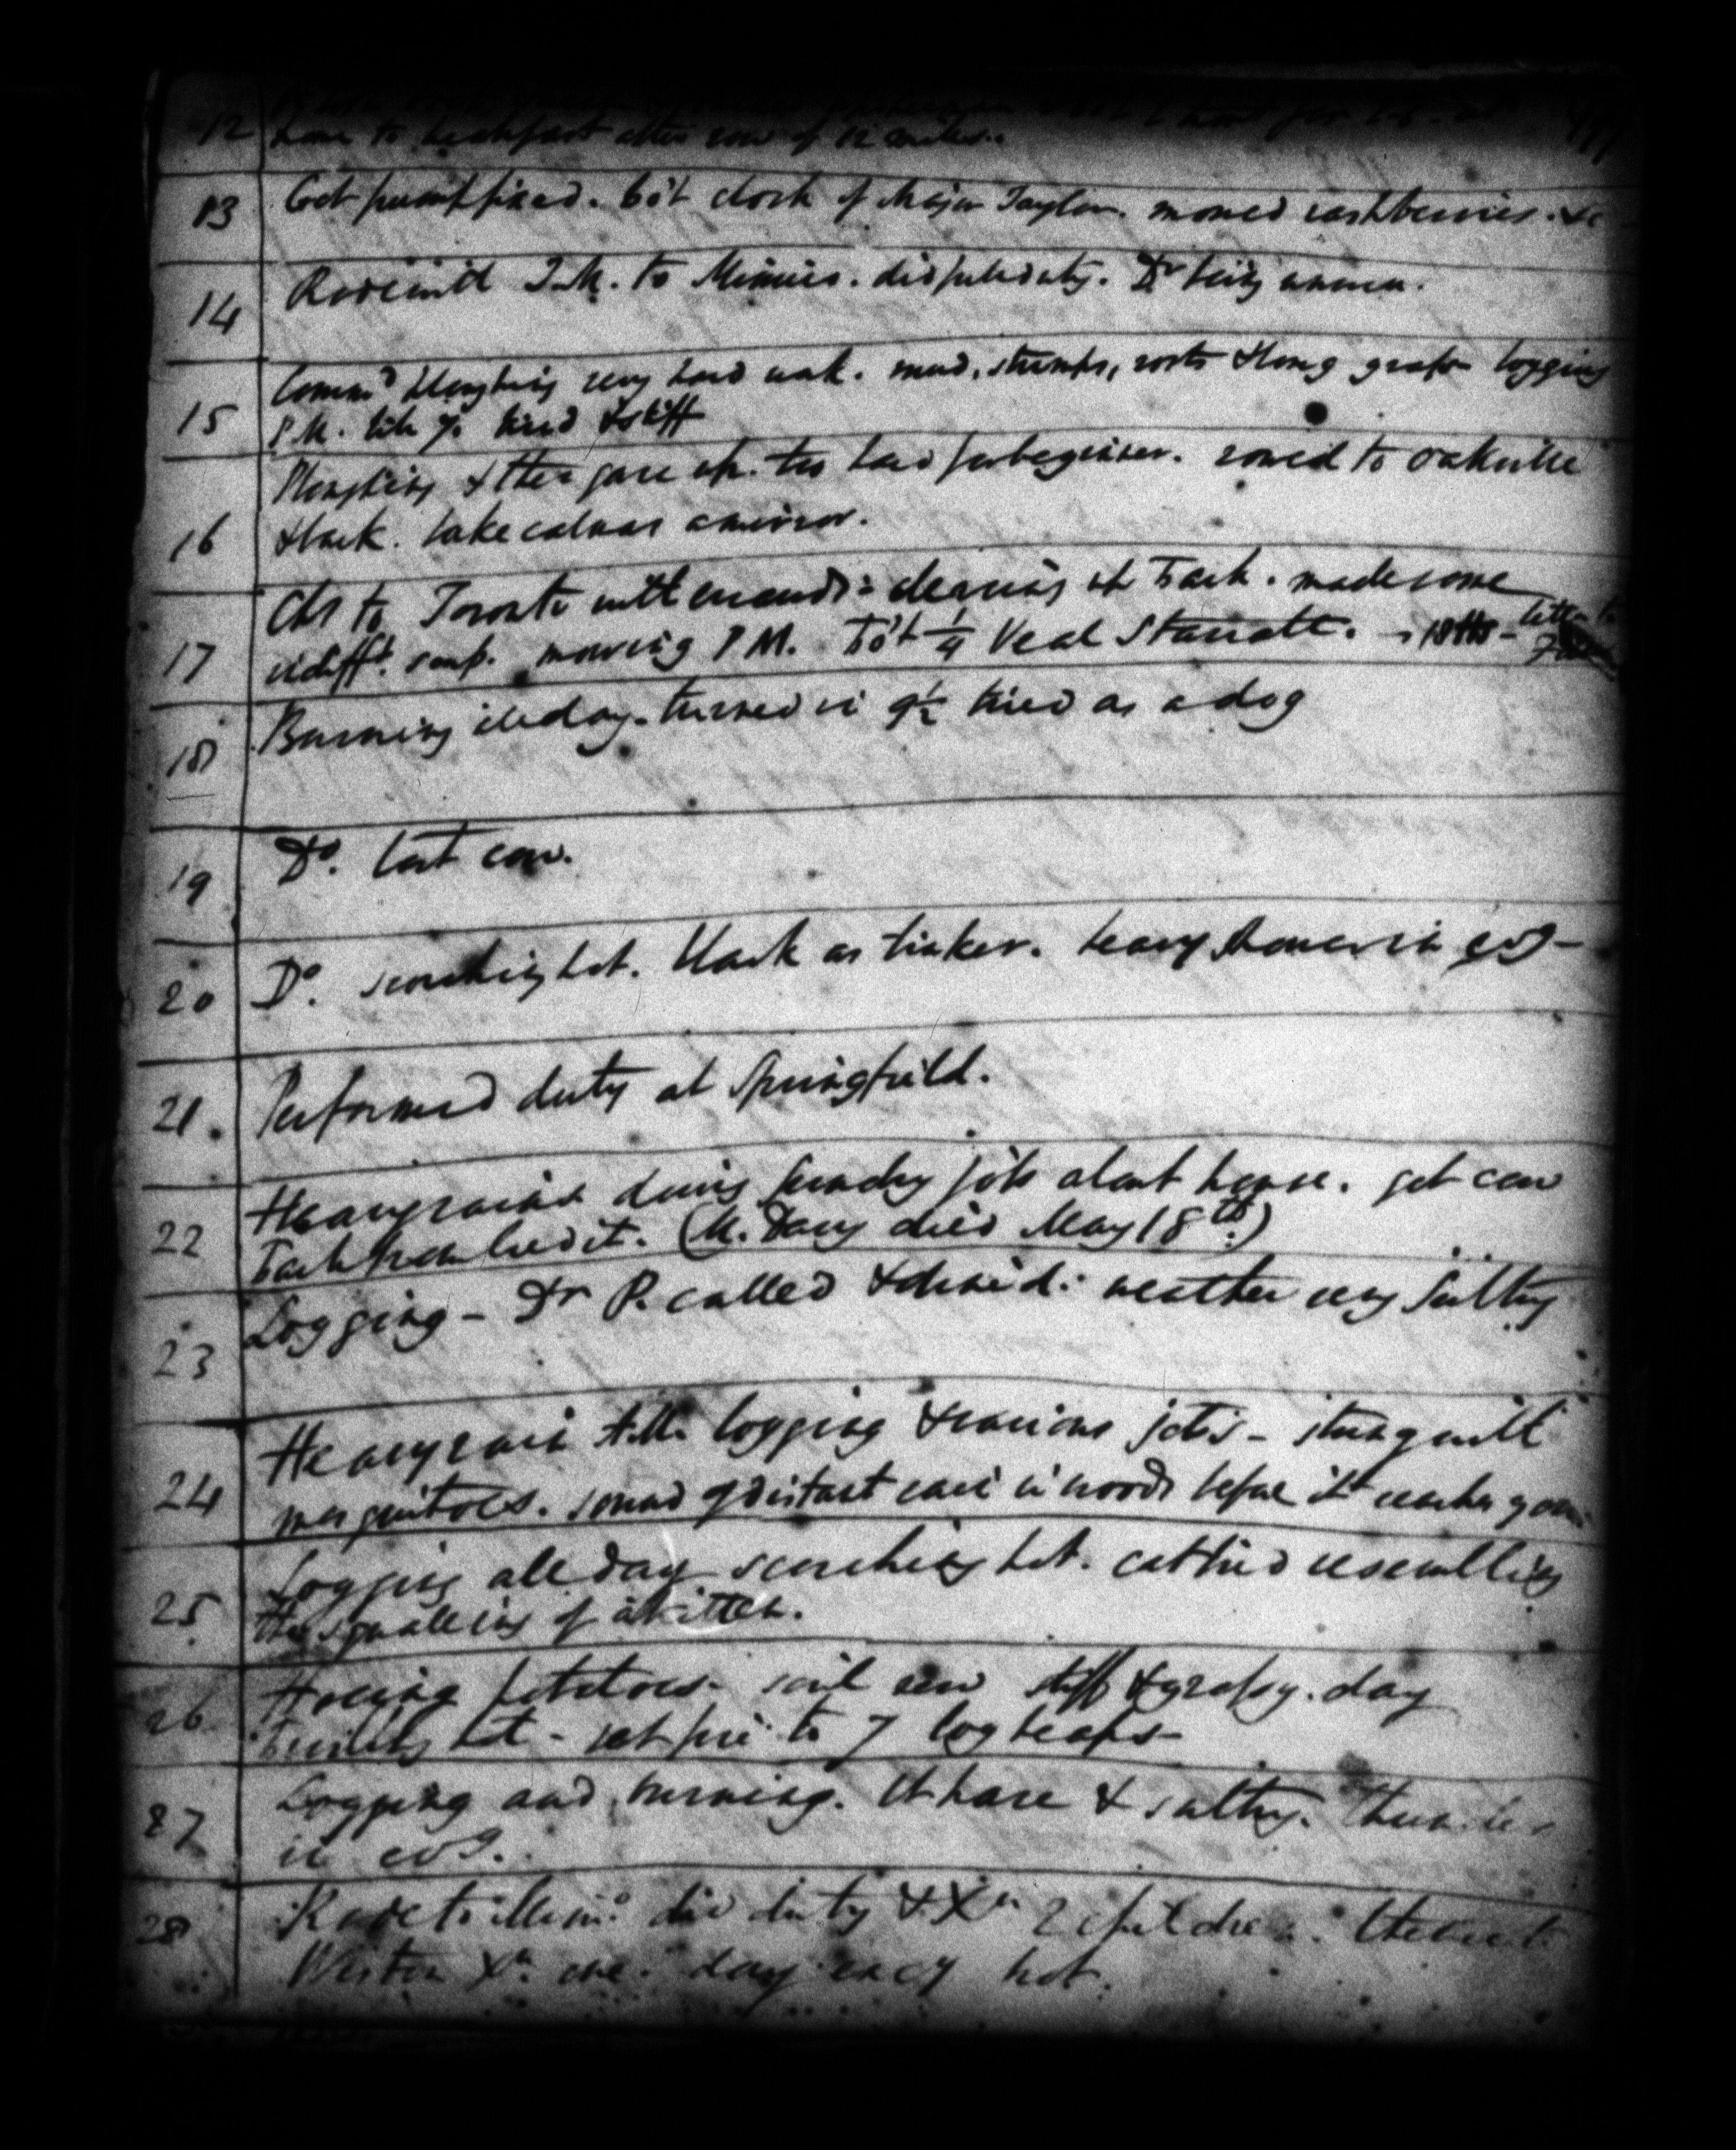 12 home to breakfast after row of 12 miles.
13 Got pump fixed. Bo't clock of Major Taylor. mowed rashberries. &c
14 Rode with J.M. to Mimico. did full duty. Dr being unwell.
15 Comm'd Ploughing very hard work. mud, stumps, roots & long grass logging
P.M. tired & stiff
16 Ploughing & then gave up. too hard for beginner. rowed to Oakville
& back. Lake calm as a mirror.
17 Chs to Toronto with errands: clearing up Track. made some
indifft. soap. mowing P.M. Bo't 1/4 Veal Starratt. 18 lbs - letter to
18 Burning all day. turned in 9½ tired as a dog
19 Do. lost cow.
20 Do. scorching hot. Black as tinker. heavy shower in evg -
21. Performed duty at Springfield.
22 Heavy rain doing sundry jobs about house. get cow
back from Credit. (M. Davy died May 18th.)
23 Logging - Dr P. called & dined: weather very sultry
24 Heavy rain logging & various jobs - stung with
mosquitoes. sound of distant rain in woods before it reaches you.
25 Logging all day scorching hot. cat bird resembling
the squalling of a kitten.
26 Hoeing potatoes - soil new stiff & grassy. day
terribly hot - set fire to 7 log heaps -
27 Logging and burning. hot & sultry. Thunder
in evg.
28 Rode to Mimo. did duty & Xn 2 children. thence to
Weston Xn. one. day very hot.